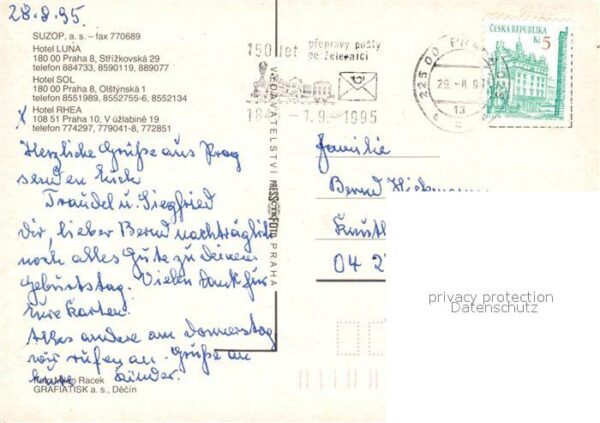 28.8.95.
SUZOP, a. s. – fax 770689
Hotel LUNA
180 00 Praha 8, Střížkovská 29
telefon 884733, 8590119, 889077
Hotel SOL
180 00 Praha 8, Olštýnská 1
telefon 8551989, 8552755-6, 8552134
x Hotel RHEA
108 51 Praha 10, V úžlabině 19
telefon 774297, 779041-8, 772851
Herzliche Grüße aus Prag
senden Euch
Traudel u. Siegfried
Dir, lieber Bernd nachträglich
noch alles Gute zu Deinem
Geburtstag. Vielen Dank für
Eure Karten.
Alles andere am Donnerstag
wir rufen an. Grüße an
Kinder.
Racek
GRAFIATISK a. s., Děčín
VYDAVATELSTVÍ PRESSFOTO PRAHA
150 let přepravy pošty
po železnici
1.9.1995
225 00 PRAHA
29.-8.9
13
ČESKÁ REPUBLIKA
Kč 5
Familie
Bernd
04 2
privacy protection
Datenschutz